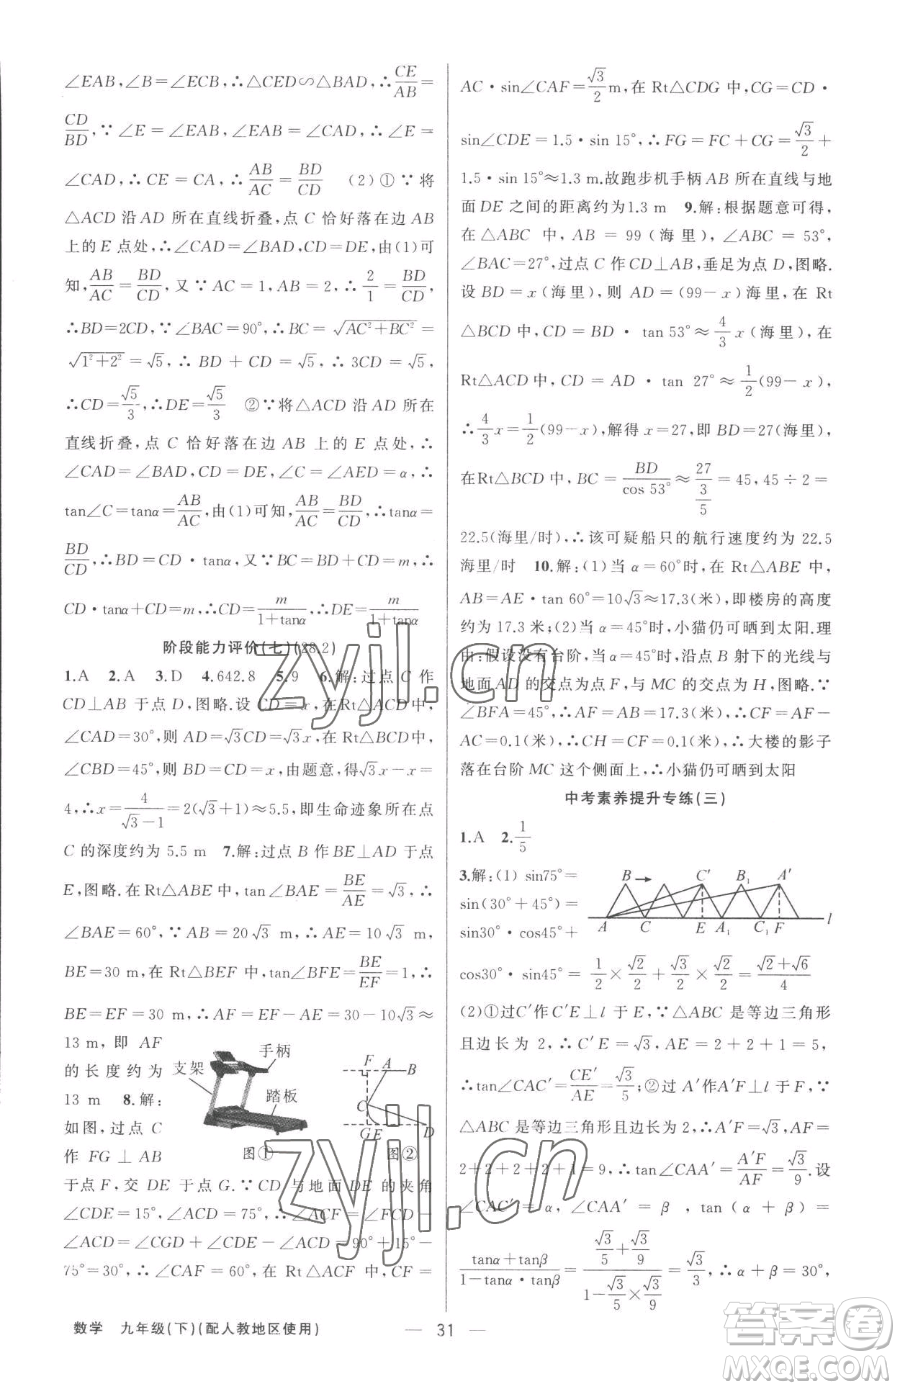 ∠EAB,∠B=∠ECB,∴△CED∽△BAD,∴CE/AB=
CD/BD,∵∠E=∠EAB,∠EAB=∠CAD,∴∠E=
∠CAD,∴CE=CA,∴AB/AC=BD/CD (2)①∵将
△ACD沿AD所在直线折叠,点C恰好落在边AB
上的E点处,∴∠CAD=∠BAD,CD=DE,由(1)可
知,AB/AC=BD/CD,又∵AC=1,AB=2,∴2/1=BD/CD,
∴BD=2CD,∵∠BAC=90°,∴BC=√(AC²+BC²)=
√(1²+2²)=√5,∴BD+CD=√5,∴3CD=√5,
∴CD=√5/3,∴DE=√5/3 ②∵将△ACD沿AD所在
直线折叠,点C恰好落在边AB上的E点处,∴
∠CAD=∠BAD,CD=DE,∠C=∠AED=α,∴
tan∠C=tanα=AB/AC,由(1)可知,AB/AC=BD/CD,∴tanα=
BD/CD,∴BD=CD·tanα,又∵BC=BD+CD=m,∴
CD·tanα+CD=m,∴CD=m/(1+tanα),∴DE=m/(1+tanα)
阶段能力评价(七)(28.2)
1.A 2.A 3.D 4.642.8 5.9 6.解:过点C作
CD⊥AB于点D,图略.设CD=x,在Rt△ACD中,
∠CAD=30°,则AD=√3CD=√3x.在Rt△BCD中,
∠CBD=45°,则BD=CD=x,由题意,得√3x-x=
4,∴x=4/(√3-1)=2(√3+1)≈5.5,即生命迹象所在点
C的深度约为5.5 m 7.解:过点B作BE⊥AD于点
E,图略.在Rt△ABE中,tan∠BAE=BE/AE=√3,∴
∠BAE=60°,∵AB=20√3 m,∴AE=10√3 m,
BE=30 m,在Rt△BEF中,tan∠BFE=BE/EF=1,∴
BE=EF=30 m,∴AF=EF-AE=30-10√3≈
13 m,即AF
的长度约为
13 m 8.解:
如图,过点C
作FG⊥AB
手柄
支架
踏板
图①
F A B
C
G E D
图②
于点F,交DE于点G.∵CD与地面DE的夹角
∠CDE=15°,∠ACD=75°,∴∠ACF=∠FCD-
∠ACD=∠CGD+∠CDE-∠ACD=90°+15°-
75°=30°,∴∠CAF=60°,在Rt△ACF中,CF=
AC·sin∠CAF=√3/2 m,在Rt△CDG中,CG=CD·
sin∠CDE=1.5·sin 15°,∴FG=FC+CG=√3/2+
1.5·sin 15°≈1.3 m.故跑步机手柄AB所在直线与地
面DE之间的距离约为1.3 m 9.解:根据题意可得,
在△ABC中,AB=99(海里),∠ABC=53°,
∠BAC=27°,过点C作CD⊥AB,垂足为点D,图略.
设BD=x(海里),则AD=(99-x)(海里),在Rt
△BCD中,CD=BD·tan 53°≈4/3x(海里),在
Rt△ACD中,CD=AD·tan 27°≈1/2(99-x),
∴4/3x=1/2(99-x),解得x=27,即BD=27(海里),
在Rt△BCD中,BC=BD/cos 53°≈27/(3/5)=45,45÷2=
22.5(海里/时),∴该可疑船只的航行速度约为22.5
海里/时 10.解:(1)当α=60°时,在Rt△ABE中,
AB=AE·tan 60°=10√3≈17.3(米),即楼房的高度
约为17.3米;(2)当α=45°时,小猫仍可晒到太阳.理
由:假设没有台阶,当α=45°时,从点B射下的光线与
地面AD的交点为点F,与MC的交点为H,图略.∵
∠BFA=45°,∴AF=AB=17.3(米),∴CF=AF-
AC=0.1(米),∴CH=CF=0.1(米),∴大楼的影子
落在台阶MC这个侧面上,∴小猫仍可晒到太阳
中考素养提升专练(三)
1.A 2.1/5
3.解:(1)sin75°=
sin(30°+45°)=
sin30°·cos45°+
B C′ B₁ A′
A C E A₁ C₁ F l
cos30°·sin45°=1/2×√2/2+√3/2×√2/2=(√2+√6)/4
(2)①过C′作C′E⊥l于E,∵△ABC是等边三角形
且边长为2,∴C′E=√3,AE=2+2+1=5,
∴tan∠CAC′=CE′/AE=√3/5;②过A′作A′F⊥l于F,
∵△ABC是等边三角形且边长为2,∴A′F=√3,AF=
2+2+2+2+1=9,∴tan∠CAA′=A′F/AF=√3/9.设
∠CAC′=α,∠CAA′=β,tan(α+β)=
(tanα+tanβ)/(1-tanα·tanβ)=(√3/5+√3/9)/(1-√3/5×√3/9)=√3/3,∴α+β=30°,
数学 九年级(下)(配人教地区使用)
— 31 —
zyjl.cn
zyjl.cn
答案圈
MXQE.COM